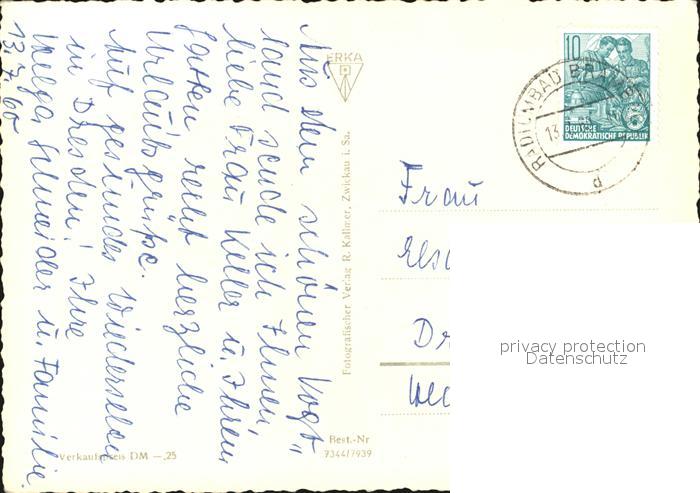 Aus dem schönen Vogt-
land sende ich Ihnen,
liebe Frau Keller u. Ihrem
Gatten recht herzliche
Urlaubsgrüße.
Auf gesundes Wiedersehen
in Dresden! Ihre
Helga Schneider u. Familie.
13.7.60
ERKA
Fotografischer Verlag R. Kallmer, Zwickau i. Sa.
Verkaufspreis DM —,25
Best.-Nr
7344/7939
10
DEUTSCHE
DEMOKRATISCHE REPUBLIK
RADIUMBAD BRAMBACH
13
d
Frau
Else
Dr
privacy protection
Datenschutz